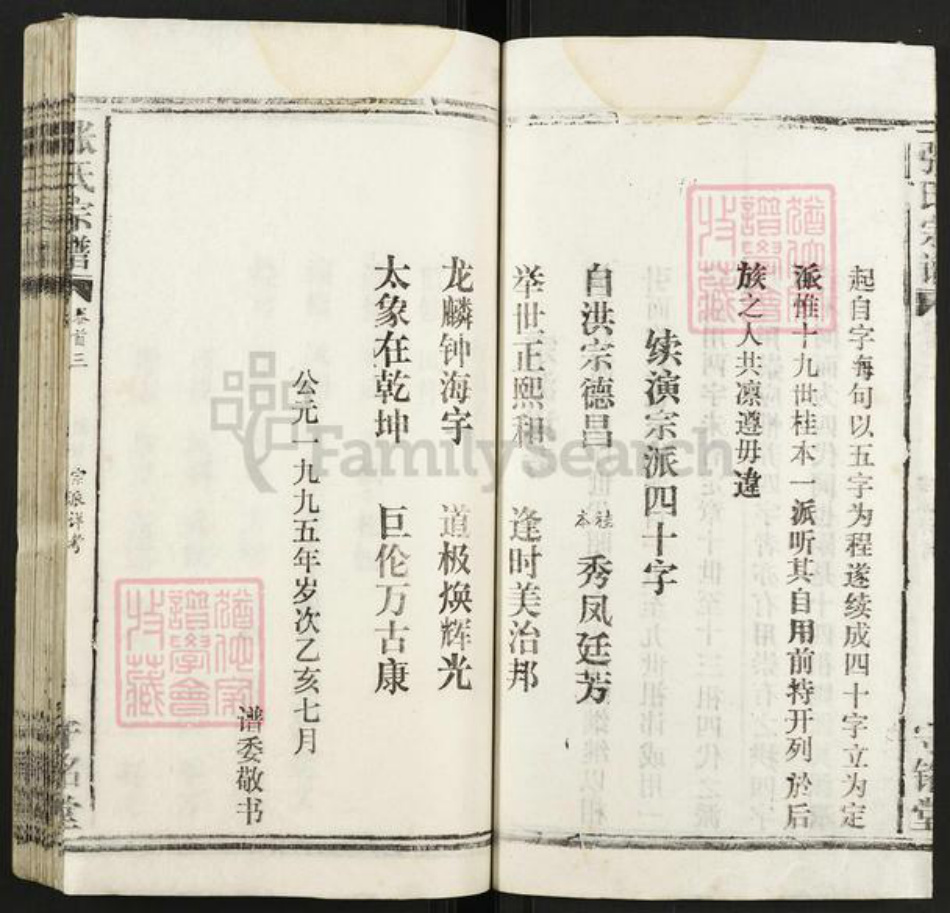 起自字每句以五字为程遂续成四十字立为定
派惟十九世桂本一派听其自用前特开列於后
族之人共凛遵毋違
续演宗派四十字
自洪宗德昌 桂本 秀凤廷芳
举世正熙和 逢时美治邦
龙麟钟海宇 道极焕辉光
太象在乾坤 巨伦万古康
公元一九九五年岁次乙亥七月
谱委敬书
张氏宗谱
卷首三
宗派详考
FamilySearch